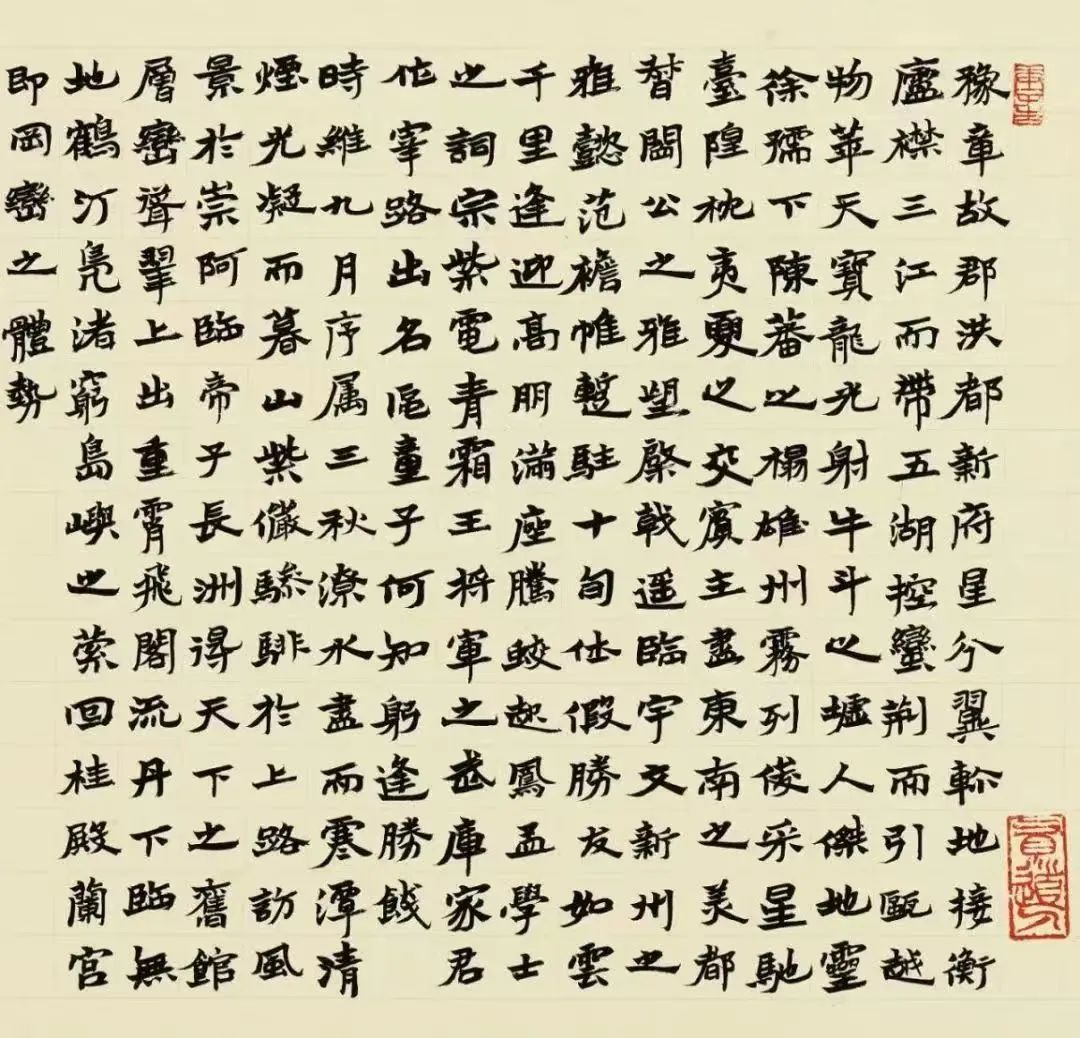 豫章故郡洪都新府星分翼軫地接衡
廬襟三江而帶五湖控蠻荆而引甌越
物華天寶龍光射牛斗之墟人傑地靈
徐孺下陳蕃之榻雄州霧列俊采星馳
臺隍枕夷夏之交賓主盡東南之美都
督閻公之雅望棨戟遥臨宇文新州之
雅懿范襜帷暫駐十旬仕假勝友如雲
千里逢迎高朋滿座騰蛟起鳳孟學士
之詞宗紫電青霜王将軍之武庫家君
作宰路出名區童子何知躬逢勝餞
時維九月序属三秋潦水盡而寒潭清
煙光凝而暮山紫儼驂騑於上路訪風
景於崇阿臨帝子長洲得天下之舊館
層巒聳翠上出重霄飛閣流丹下臨無
地鶴汀凫渚窮島嶼之萦回桂殿蘭宫
即岡巒之體勢